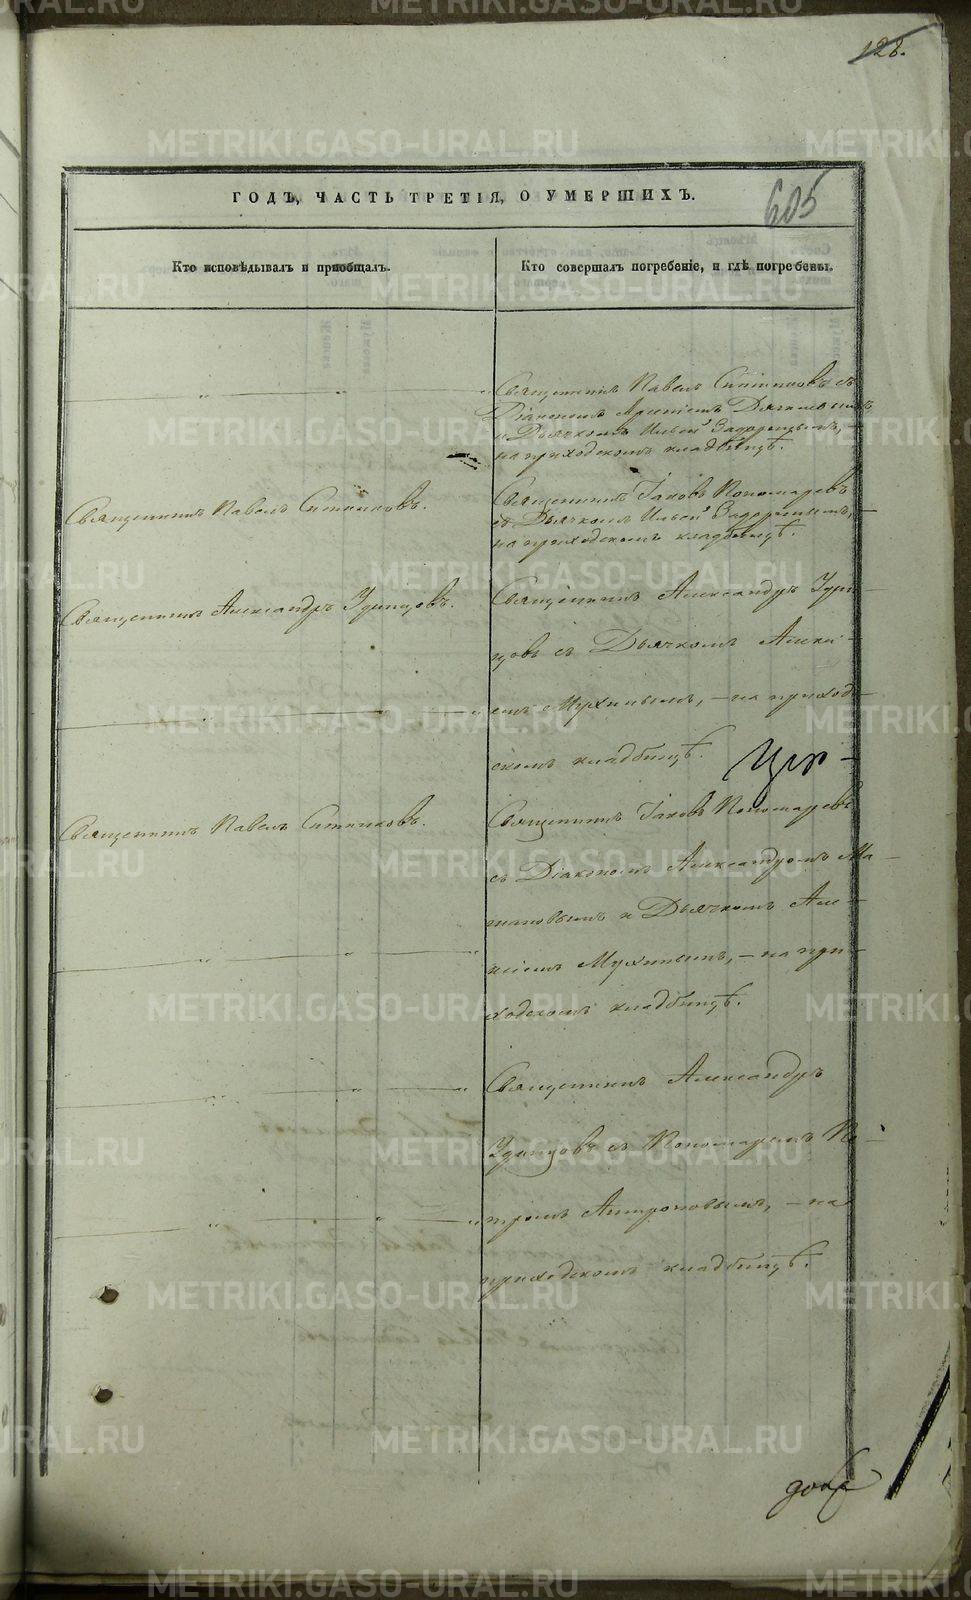 128.
ГОДЪ, ЧАСТЬ ТРЕТІЯ, О УМЕРШИХЪ.
605
Кто исповѣдывалъ и пріобщалъ.
Кто совершалъ погребеніе, и гдѣ погребены.
Священникъ Павелъ Ситниковъ съ
Діакономъ
и Дьячкомъ Ильей Задоринымъ,
на приходскомъ кладбищѣ.
Священникъ Павелъ Ситниковъ.
Священникъ Іаковъ Пономаревъ
съ Дьячкомъ Ильей Задоринымъ, —
на приходскомъ кладбищѣ.
Священникъ Александръ Удинцовъ.
Священникъ Александръ Удин
цовъ съ Дьячкомъ Алексі-
емъ Мухинымъ, — на приход-
скомъ кладбищѣ.
Священникъ Павелъ Ситниковъ.
Священникъ Іаковъ Пономаревъ
съ Діакономъ Александромъ Ма-
и Дьячкомъ Але-
ксіемъ Мухинымъ, — на при-
ходскомъ кладбищѣ.
Священникъ Александръ
Удинцовъ съ Пономаремъ Пе-
тромъ Антроповымъ, — на
приходскомъ кладбищѣ.
METRIKI.GASO-URAL.RU